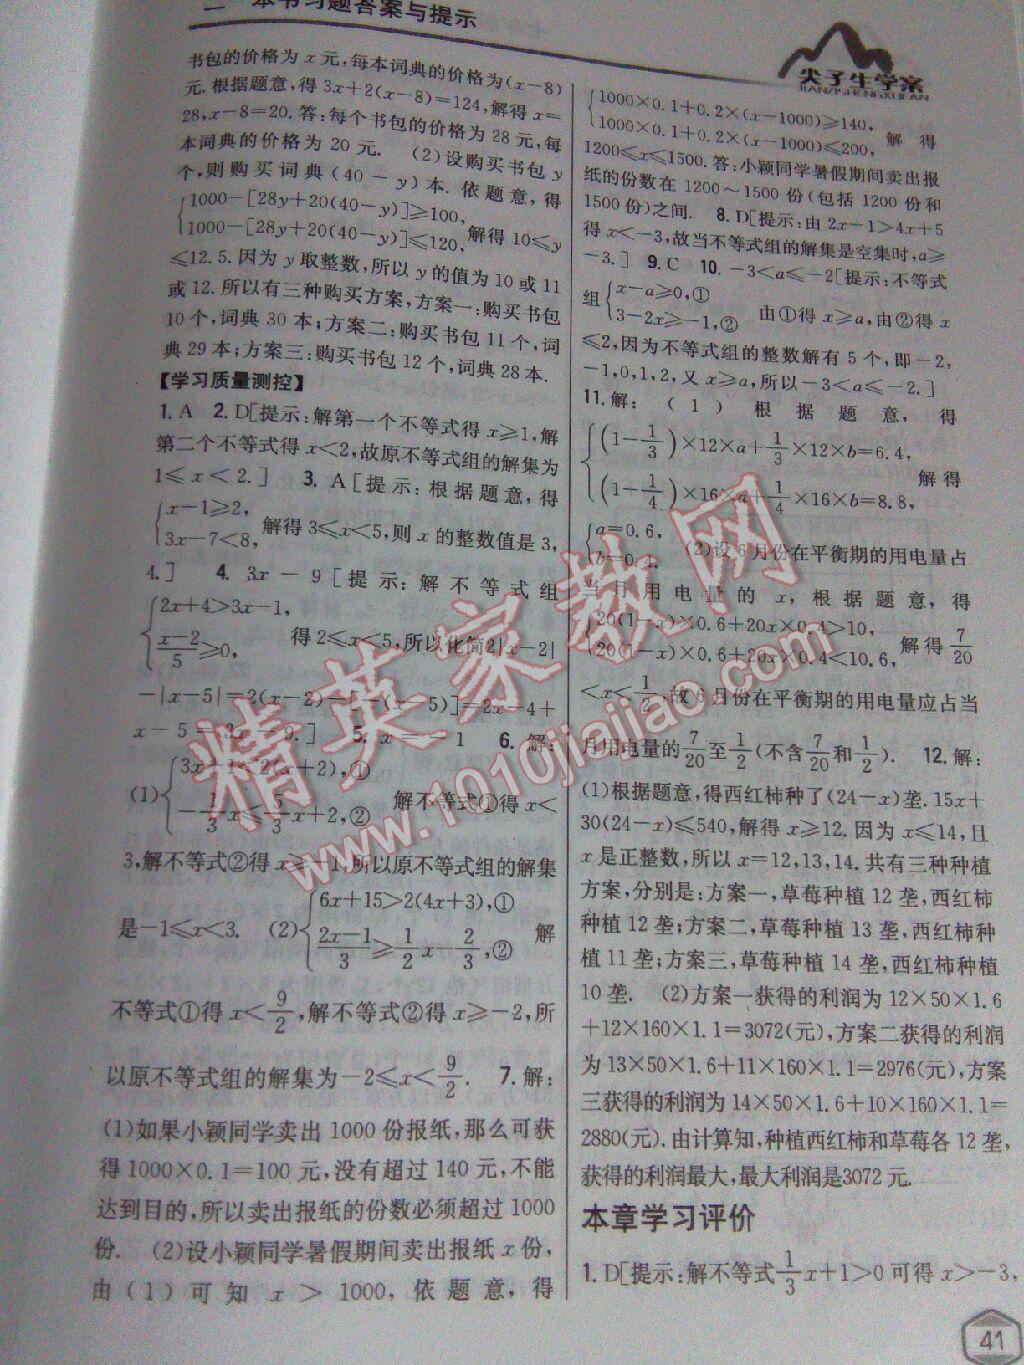 二 本书习题答案与提示
尖子生学案
JIANZISHENGXUEAN
书包的价格为 x 元,每本词典的价格为(x－8)
元.根据题意,得 3x＋2(x－8)＝124,解得 x＝
28,x－8＝20.答:每个书包的价格为 28 元,每
本词典的价格为 20 元. (2)设购买书包 y
个,则购买词典(40－y)本.依题意,得
{1000－[28y＋20(40－y)]≥100,
1000－[28y＋20(40－y)]≤120, 解得 10≤y
≤12.5.因为 y 取整数,所以 y 的值为 10 或 11
或 12.所以有三种购买方案,方案一:购买书包
10 个,词典 30 本;方案二:购买书包 11 个,词
典 29 本;方案三:购买书包 12 个,词典 28 本.
【学习质量测控】
1. A 2. D[提示:解第一个不等式得 x≥1,解
第二个不等式得 x＜2,故原不等式组的解集为
1≤x＜2.] 3. A[提示:根据题意,得
{x－1≥2,
3x－7＜8, 解得 3≤x＜5,则 x 的整数值是 3,
4.] 4. 3x－9[提示:解不等式组
{2x＋4＞3x－1,
(x－2)/5≥0, 得 2≤x＜5,所以化简2|x－2|
－|x－5|＝2(x－2)－[－(x－5)]＝2x－4＋
x－5＝3x－9.] 5. x＝－1 6. 解:
(1){3x＋1＜2(x＋2),①
－1/3x≤5/3x＋2,② 解不等式①得 x＜
3,解不等式②得 x≥－1.所以原不等式组的解集
是－1≤x＜3. (2){6x＋15＞2(4x＋3),①
(2x－1)/3≥1/2x－2/3,② 解
不等式①得 x＜9/2,解不等式②得 x≥－2,所
以原不等式组的解集为－2≤x＜9/2. 7. 解:
(1)如果小颖同学卖出 1000 份报纸,那么可获
得 1000×0.1＝100 元,没有超过 140 元,不能
达到目的,所以卖出报纸的份数必须超过 1000
份. (2)设小颖同学暑假期间卖出报纸 x 份,
由(1)可知 x＞1000,依题意,得
{1000×0.1＋0.2×(x－1000)≥140,
1000×0.1＋0.2×(x－1000)≤200, 解得
1200≤x≤1500.答:小颖同学暑假期间卖出报
纸的份数在 1200～1500 份(包括 1200 份和
1500 份)之间. 8. D[提示:由 2x－1＞4x＋5
得 x＜－3,故当不等式组的解集是空集时,a≥
－3.] 9. C 10. －3＜a≤－2[提示:不等式
组{x－a≥0,①
3－2x≥－1,② 由①得 x≥a,由②得 x
≤2,因为不等式组的整数解有 5 个,即－2,
－1,0,1,2,又 x≥a,所以－3＜a≤－2.]
11. 解:(1)根据题意,得
{(1－1/3)×12×a＋1/3×12×b＝6.4,
(1－1/4)×16×a＋1/4×16×b＝8.8, 解得
{a＝0.6,
b＝0.4. (2)设 6 月份在平衡期的用电量占
当月用电量的 x,根据题意,得
{20(1－x)×0.6＋20x×0.4＞10,
20(1－x)×0.6＋20x×0.4＜10.6, 解得 7/20
＜x＜1/2,故 6 月份在平衡期的用电量应占当
月用电量的 7/20 至 1/2(不含 7/20 和 1/2). 12. 解:
(1)根据题意,得西红柿种了(24－x)垄.15x＋
30(24－x)≤540,解得 x≥12.因为 x≤14,且
x 是正整数,所以 x＝12,13,14.共有三种种植
方案,分别是:方案一,草莓种植 12 垄,西红柿
种植 12 垄;方案二,草莓种植 13 垄,西红柿种
植 11 垄;方案三,草莓种植 14 垄,西红柿种植
10 垄. (2)方案一获得的利润为 12×50×1.6
＋12×160×1.1＝3072(元),方案二获得的利润
为 13×50×1.6＋11×160×1.1＝2976(元),方案
三获得的利润为 14×50×1.6＋10×160×1.1＝
2880(元).由计算知,种植西红柿和草莓各 12 垄,
获得的利润最大,最大利润是3072 元.
本章学习评价
1. D[提示:解不等式1/3x＋1＞0 可得 x＞－3,
41
精英家教网
www.1010jiajiao.com